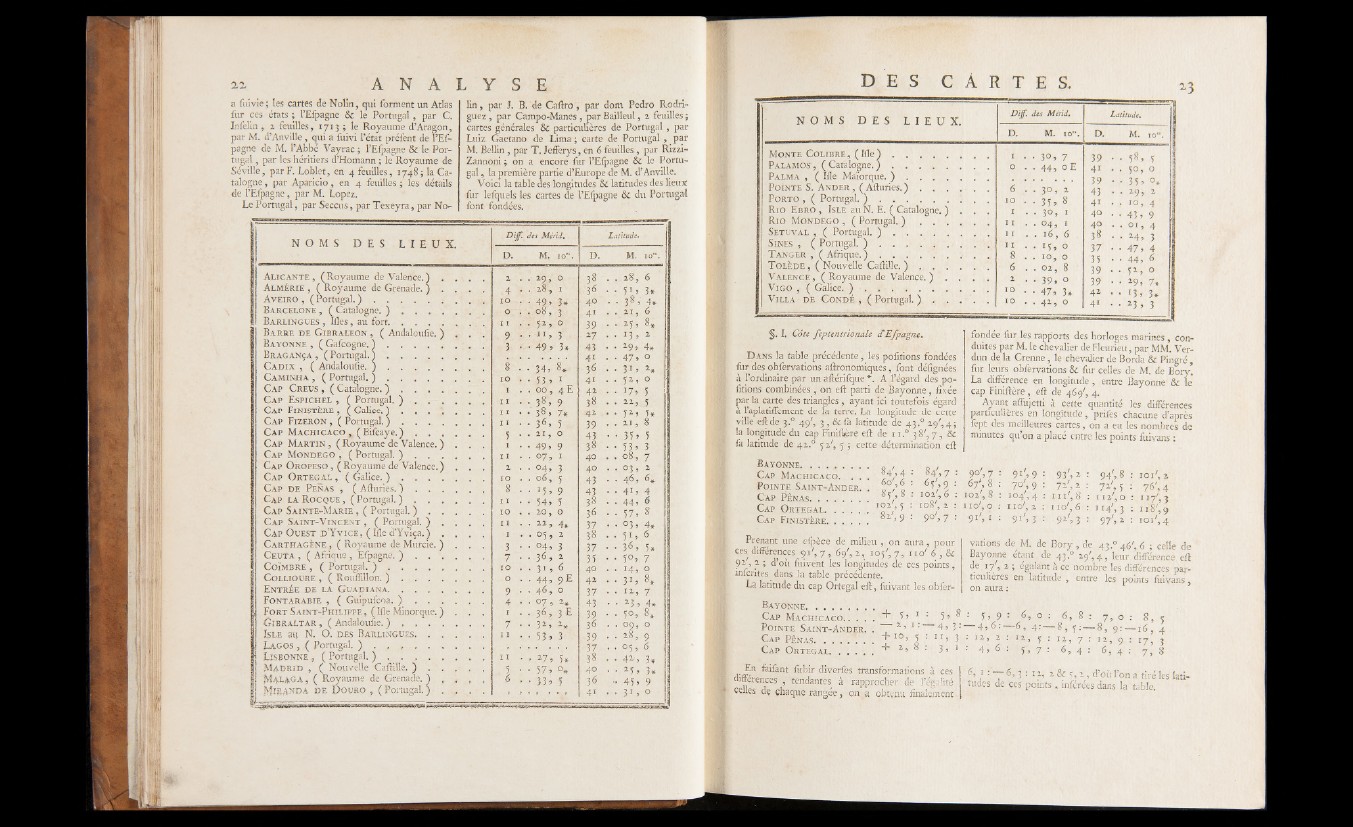 22 ANALYSE
a suivie ; les cartes de Nolin, qui forment un Atlas
sur ces états ; l'Espagne & le Portugal, par C.
Inselin, 2 feuilles, 1713 ; le Royaume d'Aragon,
par M. d'Anville, qui a suivi l'état présent de l'Es-
pagne de M. l'Abbé Vayrac ; l'Espagne & le Por-
tugal, par les héritiers d'Homann ; le Royaume de
Séville, par F. Loblet, en 4 feuilles, 1748 ; la Ca-
talogne, par Aparicio, en 4 feuilles ; les détails
de l'Espagne, par M. Lopez.
Le Portugal, par Seccus, par Texeyra, par No-
lin, par J. B. de Castro, par dom Pedro Rodri-
guez, par Campo-Manes, par Bailleul, 2 feuilles ;
cartes générales & particulières de Portugal, par
Luiz Gaetano de Lima ; carte de Portugal, par
M. Bellin, par T. Jefferys, en 6 feuilles, par Rizzi-
Zannoni ; on a encore sur l'Espagne & le Portu-
gal, la première partie d'Europe de M. d'Anville.
Voici la table des longitudes & latitudes des lieux
sur lesquels les cartes de l'Espagne & du Portugal
sont fondées.
NOMS DES LIEUX. Diff. des Mérid. Latitude.
D. M. 10es. D. M. 10es.
ALICANTE, (Royaume de Valence.) 2 . . 29, 0 38 . . 28, 6
ALMÉRIE, (Royaume de Grenade.) 4 . . 28, 1 36 . . 51, 3*
AVEIRO, (Portugal.) 10 . . 49, 3* 40 . . 38, 4*
BARCELONE, (Catalogne.) 0 . . 08, 3 41 . . 21, 6
BARLINGUES, Isles, au fort. 11 . . 52, 0 39 . . 25, 8*
BARRE DE GIBRALEON, (Andalousie.) 9 . . 11, 3 27 . . 13, 2
BAYONNE, (Gascogne.) 3 . . 49, 3* 43 . . 29, 4*
BRAGANÇA, (Portugal.) 41 . . 47, 0
CADIX, (Andalousie.) 8 . . 34, 8* 36 . . 31, 2*
CAMINHA, (Portugal.) 10 . . 53, 1 41 . . 52, 0
CAP CREUS, (Catalogne.) 1 . . 00, 4 E 42 . . 17, 5
CAP ESPICHEL, (Portugal.) 11 . . 38, 9 38 . . 22, 5
CAP FINISTÈRE, (Galice.) 11 . . 38, 7* 42 . . 52, 5*
CAP FIZERON, (Portugal.) 11 . . 36, 5 39 . . 21, 8
CAP MACHICACO, (Biscaye.) 5 . . 21, 0 43 . . 35, 5
CAP MARTIN, (Royaume de Valence.) 1 . . 49, 9 38 . . 53, 3
CAP MONDEGO, (Portugal.) 11 . . 07, 1 40 . . 08, 7
CAP OROPESO, (Royaume de Valence.) 2 . . 04, 3 40 . . 03, 2
CAP ORTEGAL, (Galice.) 10 . . 06, 5 43 . . 46, 6*
CAP DE PEÑAS, (Asturies.) 8 . . 15, 9 43 . . 41, 4
CAP LA ROCQUE, (Portugal.) 11 . . 54, 5 38 . . 44, 6
CAP SAINTE-MARIE, (Portugal.) 10 . . 20, 0 36 . . 57, 8
CAP SAINT-VINCENT, (Portugal.) 11 . . 22, 4* 37 . . 03, 4*
CAP OUEST D'YVICE, (Isle d'Yviça.) 1 . . 05, 2 38 . . 51, 6
CARTHAGÈNE, (Royaume de Murcie.) 3 . . 04, 3 37 . . 36, 5*
CEUTA, (Afrique, Espagne.) 7 . . 36, 2 35 . . 50, 7
COÏMBRE, (Portugal.) 10 . . 31, 6 40 . . 14, 0
COLLIOURE, (Roussillon.) 0 . . 44, 9 E 42 . . 31, 8*
ENTRÉE DE LA GUADIANA. 9 . . 46, 0 37 . . 12, 7
FONTARABIE, (Guipuscoa.) 4 . . 07, 2* 43 . . 23, 4*
FORT SAINT-PHILIPPE, (Isle Minorque.) 1 . . 36, 3 E 39 . . 50, 8*
GIBRALTAR, (Andalousie.) 7 . . 32, 2* 36 . . 09, 0
ISLE au N. O. DES BARLINGUES. 11 . . 53, 3 39 . . 28, 9
LAGOS, (Portugal.) 37 . . 05, 6
LISBONNE, (Portugal.) 11 . . 27, 5* 38 . . 42, 3*
MADRID, (Nouvelle Castille.) 5 . . 57, 0* 40 . . 25, 3*
MALAGA, (Royaume de Grenade.) 6 . . 33, 5 36 . . 45, 9
MIRANDA DE DOURO, (Portugal.) 41 . . 31, 0
DES CARTES. 23
NOMS DES LIEUX. Diff. des Mérid. Latitude.
D. M. 10es. D. M. 10es.
MONTE COLIBRE, (Isle) 1 . . 30, 7 39 . . 58, 5
PALAMOS, (Catalogne.) 0 . . 44, 0 E 41 . . 50, 0
PALMA, (Isle Maïorque.) 39 . . 35, 0*
POINTE S. ANDER, (Asturies.) 6 . . 30, 2 43 . . 29, 2
PORTO, (Portugal.) 10 . . 35, 8 41 . . 10, 4
RIO EBRO, ISLE au N. E. (Catalogne.) 1 . . 30, 1 40 . . 43, 9
RIO MONDEGO, (Portugal.) 11 . . 04, 1 40 . . 01, 4
SETUVAL, (Portugal.) 11 . . 16, 6 38 . . 24, 3
SINES, (Portugal.) 11 . . 15, 0 37 . . 47, 4
TANGER, (Afrique.) 8 . . 10, 0 35 . . 44, 6
TOLÈDE, (Nouvelle Castille.) 6 . . 02, 8 39 . . 52, 0
VALENCE, (Royaume de Valence.) 2 . . 39, 0 39 . . 29, 7*
VIGO, (Galice.) 10 . . 47, 3* 42 . . 13, 3*
VILLA DE CONDÉ, (Portugal.) 10 . . 42, 0 41 . . 23, 3
§. I. Côte septentrionale d'Espagne.
DANS la table précédente, les positions fondées
sur des observations astronomiques, sont désignées
à l'ordinaire par un astérisque *. A l'égard des po-
sitions combinées, on est parti de Bayonne, fixée
par la carte des triangles, ayant ici toutefois égard
à l'aplatissement de la terre. La longitude de cette
ville est de 3.° 49′, 3, & sa latitude de 43.° 29′, 4 ;
la longitude du cap Finistère est de 11.° 38′, 7, &
sa latitude de 42.° 52′, 5 ; cette détermination est
fondée sur les rapports des horloges marines, con-
duites par M. le chevalier de Fleurieu, par MM. Ver-
dun de la Crenne, le chevalier de Borda & Pingré,
sur leurs observations & sur celles de M. de Bory.
La différence en longitude, entre Bayonne & le
cap Finistère, est de 469′, 4.
Ayant assujetti à cette quantité les différences
particulières en longitude, prises chacune d'après
sept des meilleures cartes, on a eu les nombres de
minutes qu'on a placé entre les points suivans :
BAYONNE.
84′, 4 : 84′, 7 : 90′, 7 : 91′, 9 : 93′, 2 : 94′, 8 : 101′, 2
CAP MACHICACO.
60′, 6 : 65′, 9 : 67′, 8 : 70′, 9 : 72′, 2 : 72′, 5 : 76′, 4
POINTE SAINT-ANDER.
85′, 8 : 102′, 6 : 102′, 8 : 104′, 4 : 111′, 8 : 112′, 0 : 117′, 3
CAP PÉNAS.
102′, 5 : 108′, 2 : 110′, 0 : 110′, 2 : 110′, 6 : 114′, 3 : 118′, 9
CAP ORTEGAL.
82′, 9 : 90′, 7 : 91′, 1 : 91′, 3 : 92′, 3 : 97′, 2 : 101′, 4
CAP FINISTÈRE.
Prenant une espèce de milieu, on aura, pour
ces différences 91′, 7, 69′, 2, 105′, 7, 110′ 6, &
92′, 2 ; d'où suivent les longitudes de ces points,
inscrites dans la table précédente.
La latitude du cap Ortegal est, suivant les obser-
vations de M. de Bory, de 43.° 46′, 6 ; celle de
Bayonne étant de 43.° 29′, 4, leur différence est
de 17′, 2 ; égalant à ce nombre les différences par-
ticulières en latitude, entre les points suivans,
on aura :
BAYONNE.
+ 5, 1 : 5, 8 : 5, 9 : 6, 0 : 6, 8 : 7, 0 : 8, 5
CAP MACHICACO.
— 2, 1 : — 4, 3 : — 4, 6 : — 6, 4 : — 8, 5 : — 8, 9 : — 16, 4
POINTE SAINT-ANDER.
+ 10, 5 : 11, 3 : 12, 2 : 12, 5 : 12, 7 : 12, 9 : 17, 3
CAP PÉNAS.
+ 2, 8 : 3, 1 : 4, 6 : 5, 7 : 6, 4 : 6, 4 : 7, 8
CAP ORTEGAL.
En faisant subir diverses transformations à ces
différences, tendantes à rapprocher de l'égalité
celles de chaque rangée, on a obtenu finalement
6, 1 : — 6, 3 : 12, 2 & 5, 2, d'où l'on a tiré les lati-
tudes de ces points, insérées dans la table.